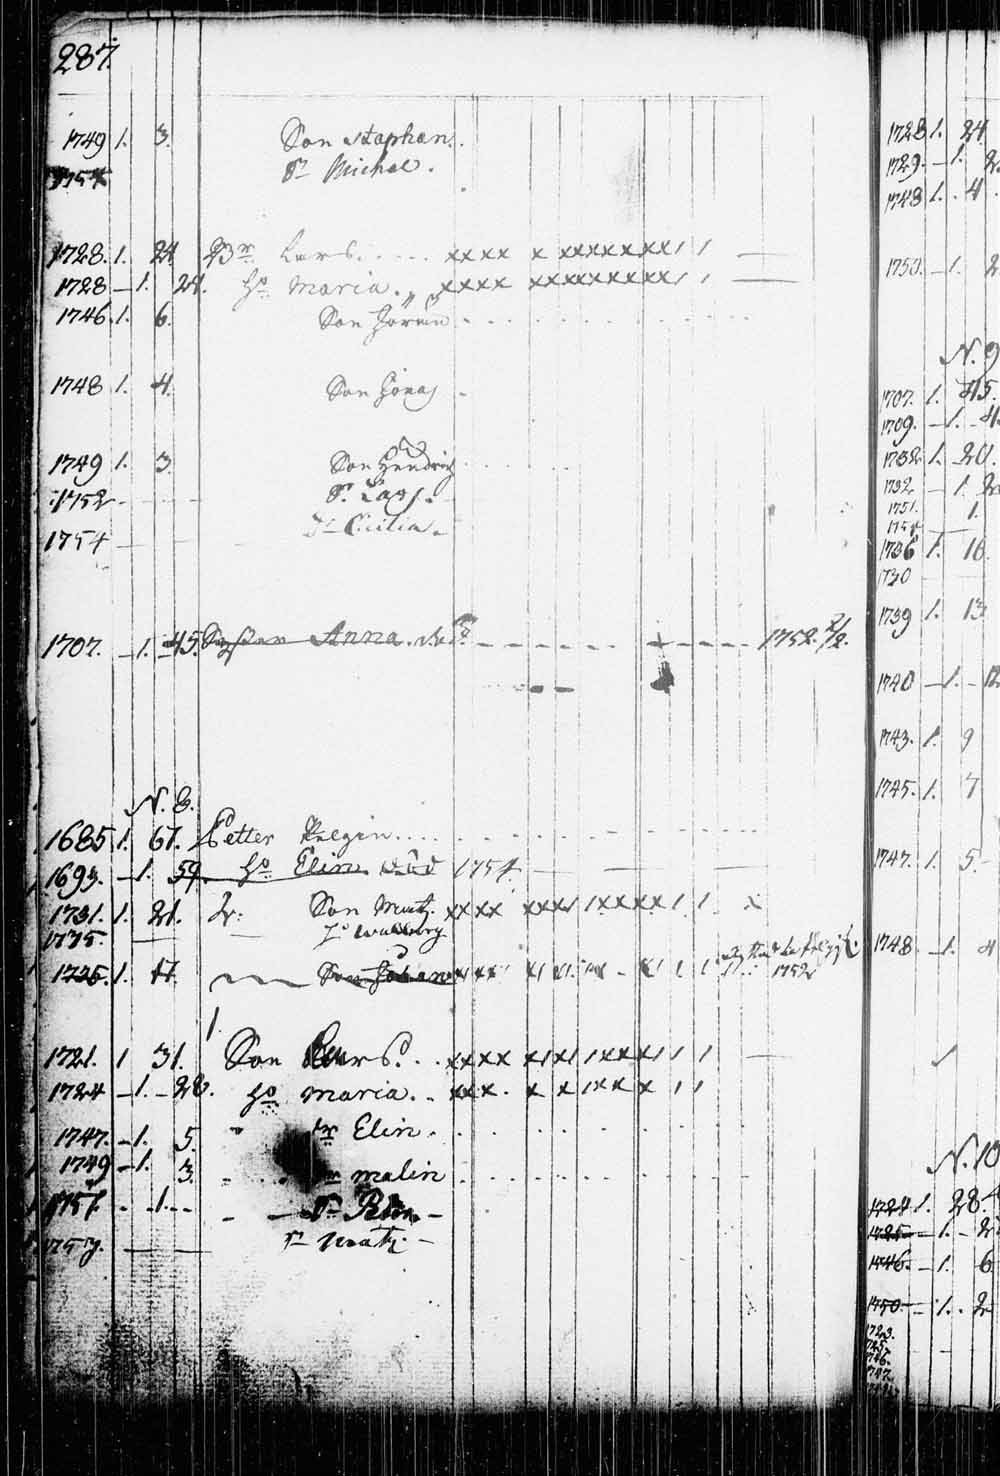 287.
1749 1. 3. Son Staphan.
1754 Sn Michel.
1728. 1. 24 Br. Lars. xxxx x xxxxxxxx 1 1
1728 1. 24. Ho Maria. xxxx xxxxxxxxxx 1 1
1746. 1. 6. Son
1748 1. 4. Son Jonas
1749 1. 3. Son Hendrich
1752 Sn Lars.
1754 Dr Cicilia.
1707. 1. 45. Syster Anna. död 1752. 2/2.
N. 8.
1685 1. 67. Petter
1693. 1. 59. Ho Elin död 1754.
1731. 1. 21. 2r: Son Matz. xxxx xxx1 1xxxx1 1 1 x
1735. Ho Walborg
1735. 1. 17. Son Johan 1752
1.
1721. 1 31. Son Lars. xxxx x1x1 1xxx1 1 1
1724 1. 28. Ho Maria. xxx. x x 1xx x 1 1
1747. 1. 5. Dr Elin.
1749 1. 3. Malin
1751. 1. Sn
1753. Sn Matz.
1728 1. 24
1729. 1.
1748 1. 4
1750. 1. 2
N. 9
1707. 1. 45.
1709. 1. 4
1732 1. 20.
1732 1. 2
1751. 1.
1754
1736 1. 16
1730
1739 1. 13
1740 1. 12
1743. 1. 9
1745. 1. 7
1747. 1. 5
1748 1. 4
N. 10
1724 1. 28.
1725 1. 2
1746. 1. 6
1750 1. 2
1723.
1725.
1746.
1747.